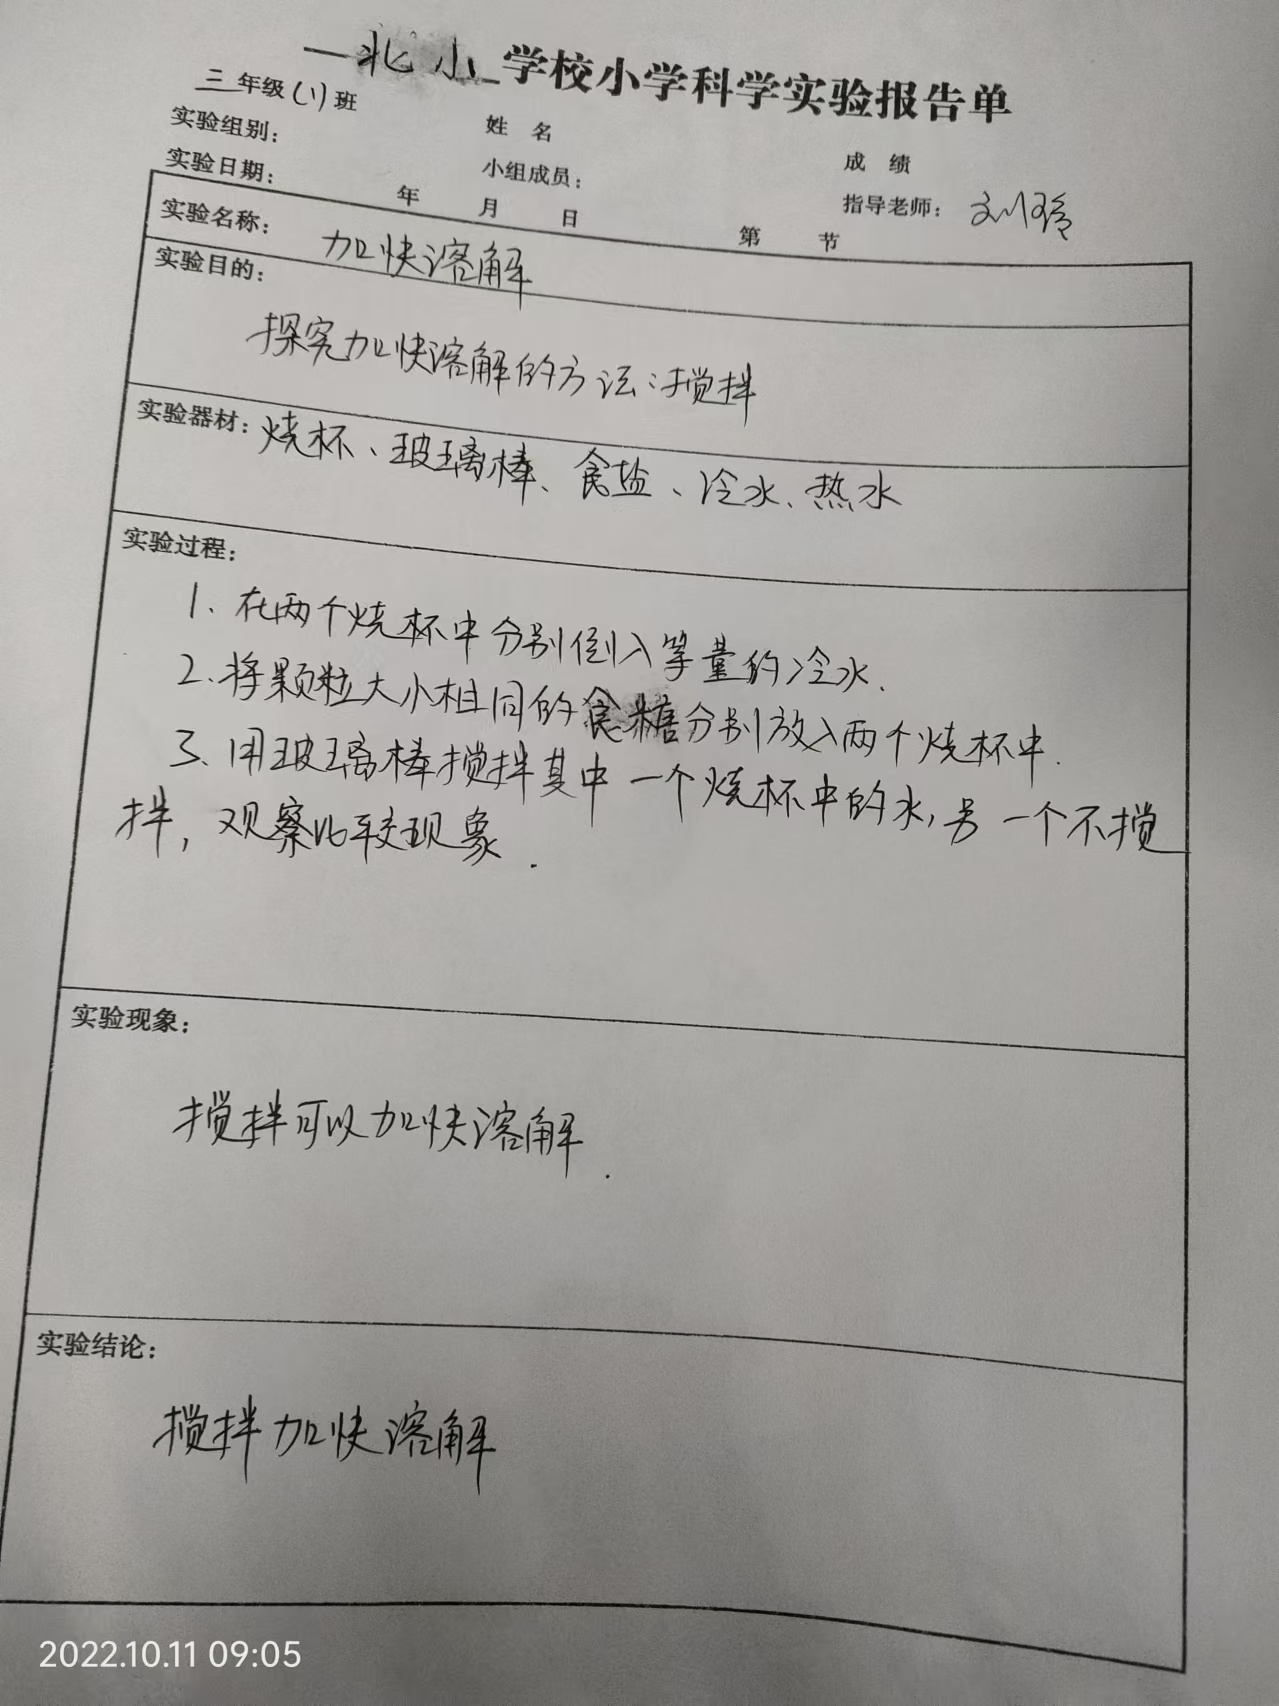 北小 学校小学科学实验报告单
三年级(1)班
实验组别： 姓 名 成 绩
实验日期： 小组成员： 指导老师：刘玲
年 月 日 第 节
实验名称： 加快溶解
实验目的：
探究加快溶解的方法：搅拌
实验器材：烧杯、玻璃棒、食盐、冷水、热水
实验过程：
1.在两个烧杯中分别倒入等量的冷水.
2.将颗粒大小相同的食糖分别放入两个烧杯中.
3、用玻璃棒搅拌其中一个烧杯中的水,另一个不搅
拌,观察比较现象.
实验现象：
搅拌可以加快溶解.
实验结论：
搅拌加快溶解
2022.10.11 09:05